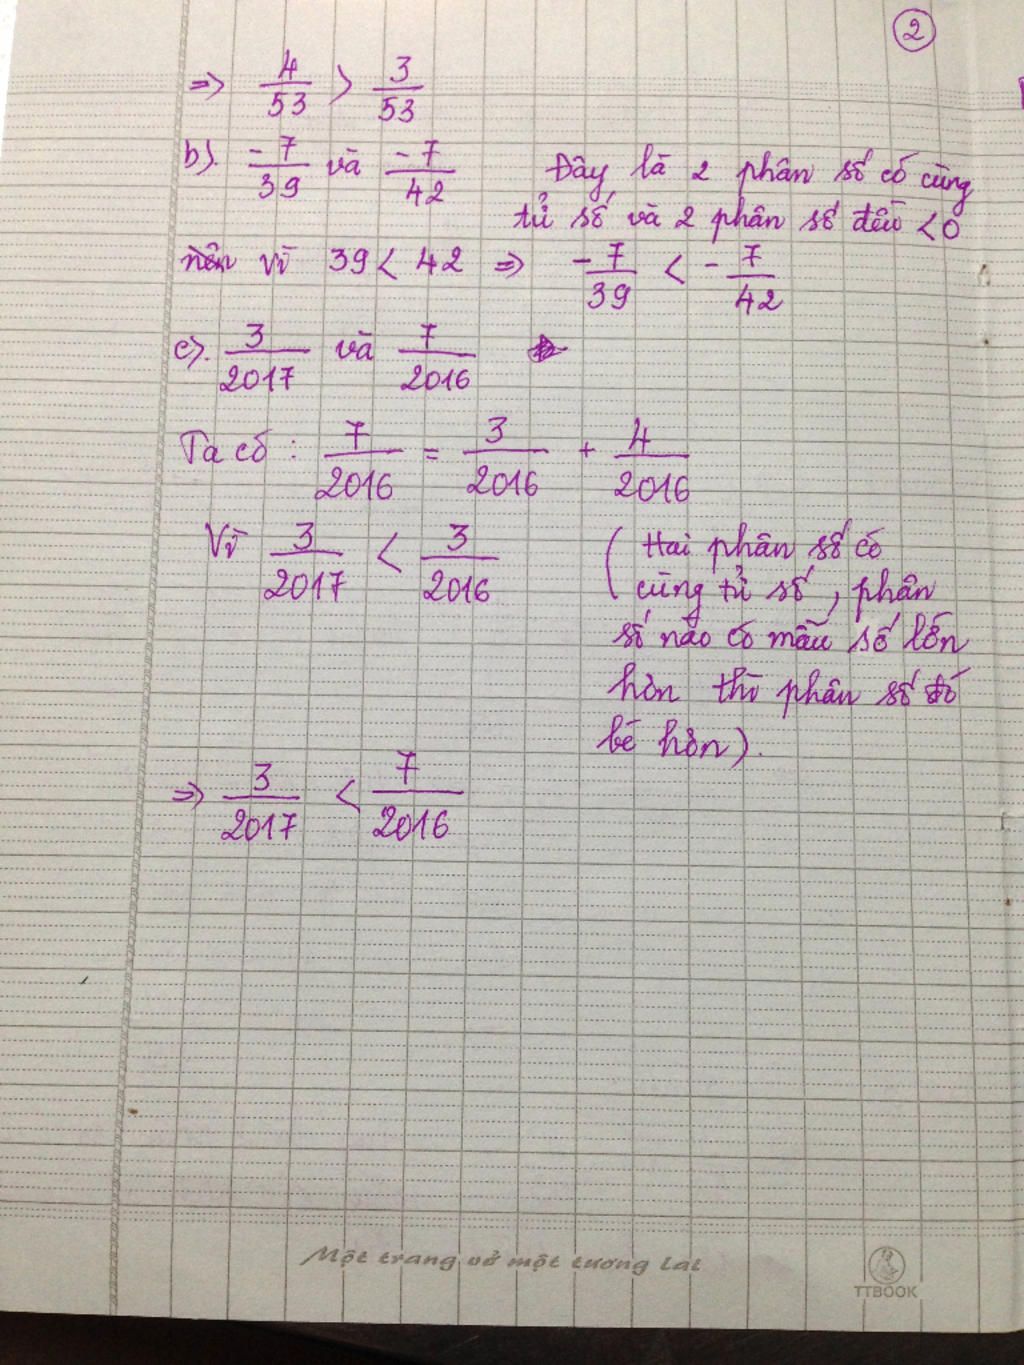 2
=> 4/53 > 3/53
b). -7/39 và -7/42 Đây là 2 phân số có cùng
tử số và 2 phân số đều < 0
nên vì 39 < 42 => -7/39 < -7/42
c). 3/2017 và 7/2016
Ta có : 7/2016 = 3/2016 + 4/2016
Vì 3/2017 < 3/2016 ( Hai phân số có
cùng tử số, phân
số nào có mẫu số lớn
hơn thì phân số đó
bé hơn).
=> 3/2017 < 7/2016
Một trang vở một tương lai
TTBOOK